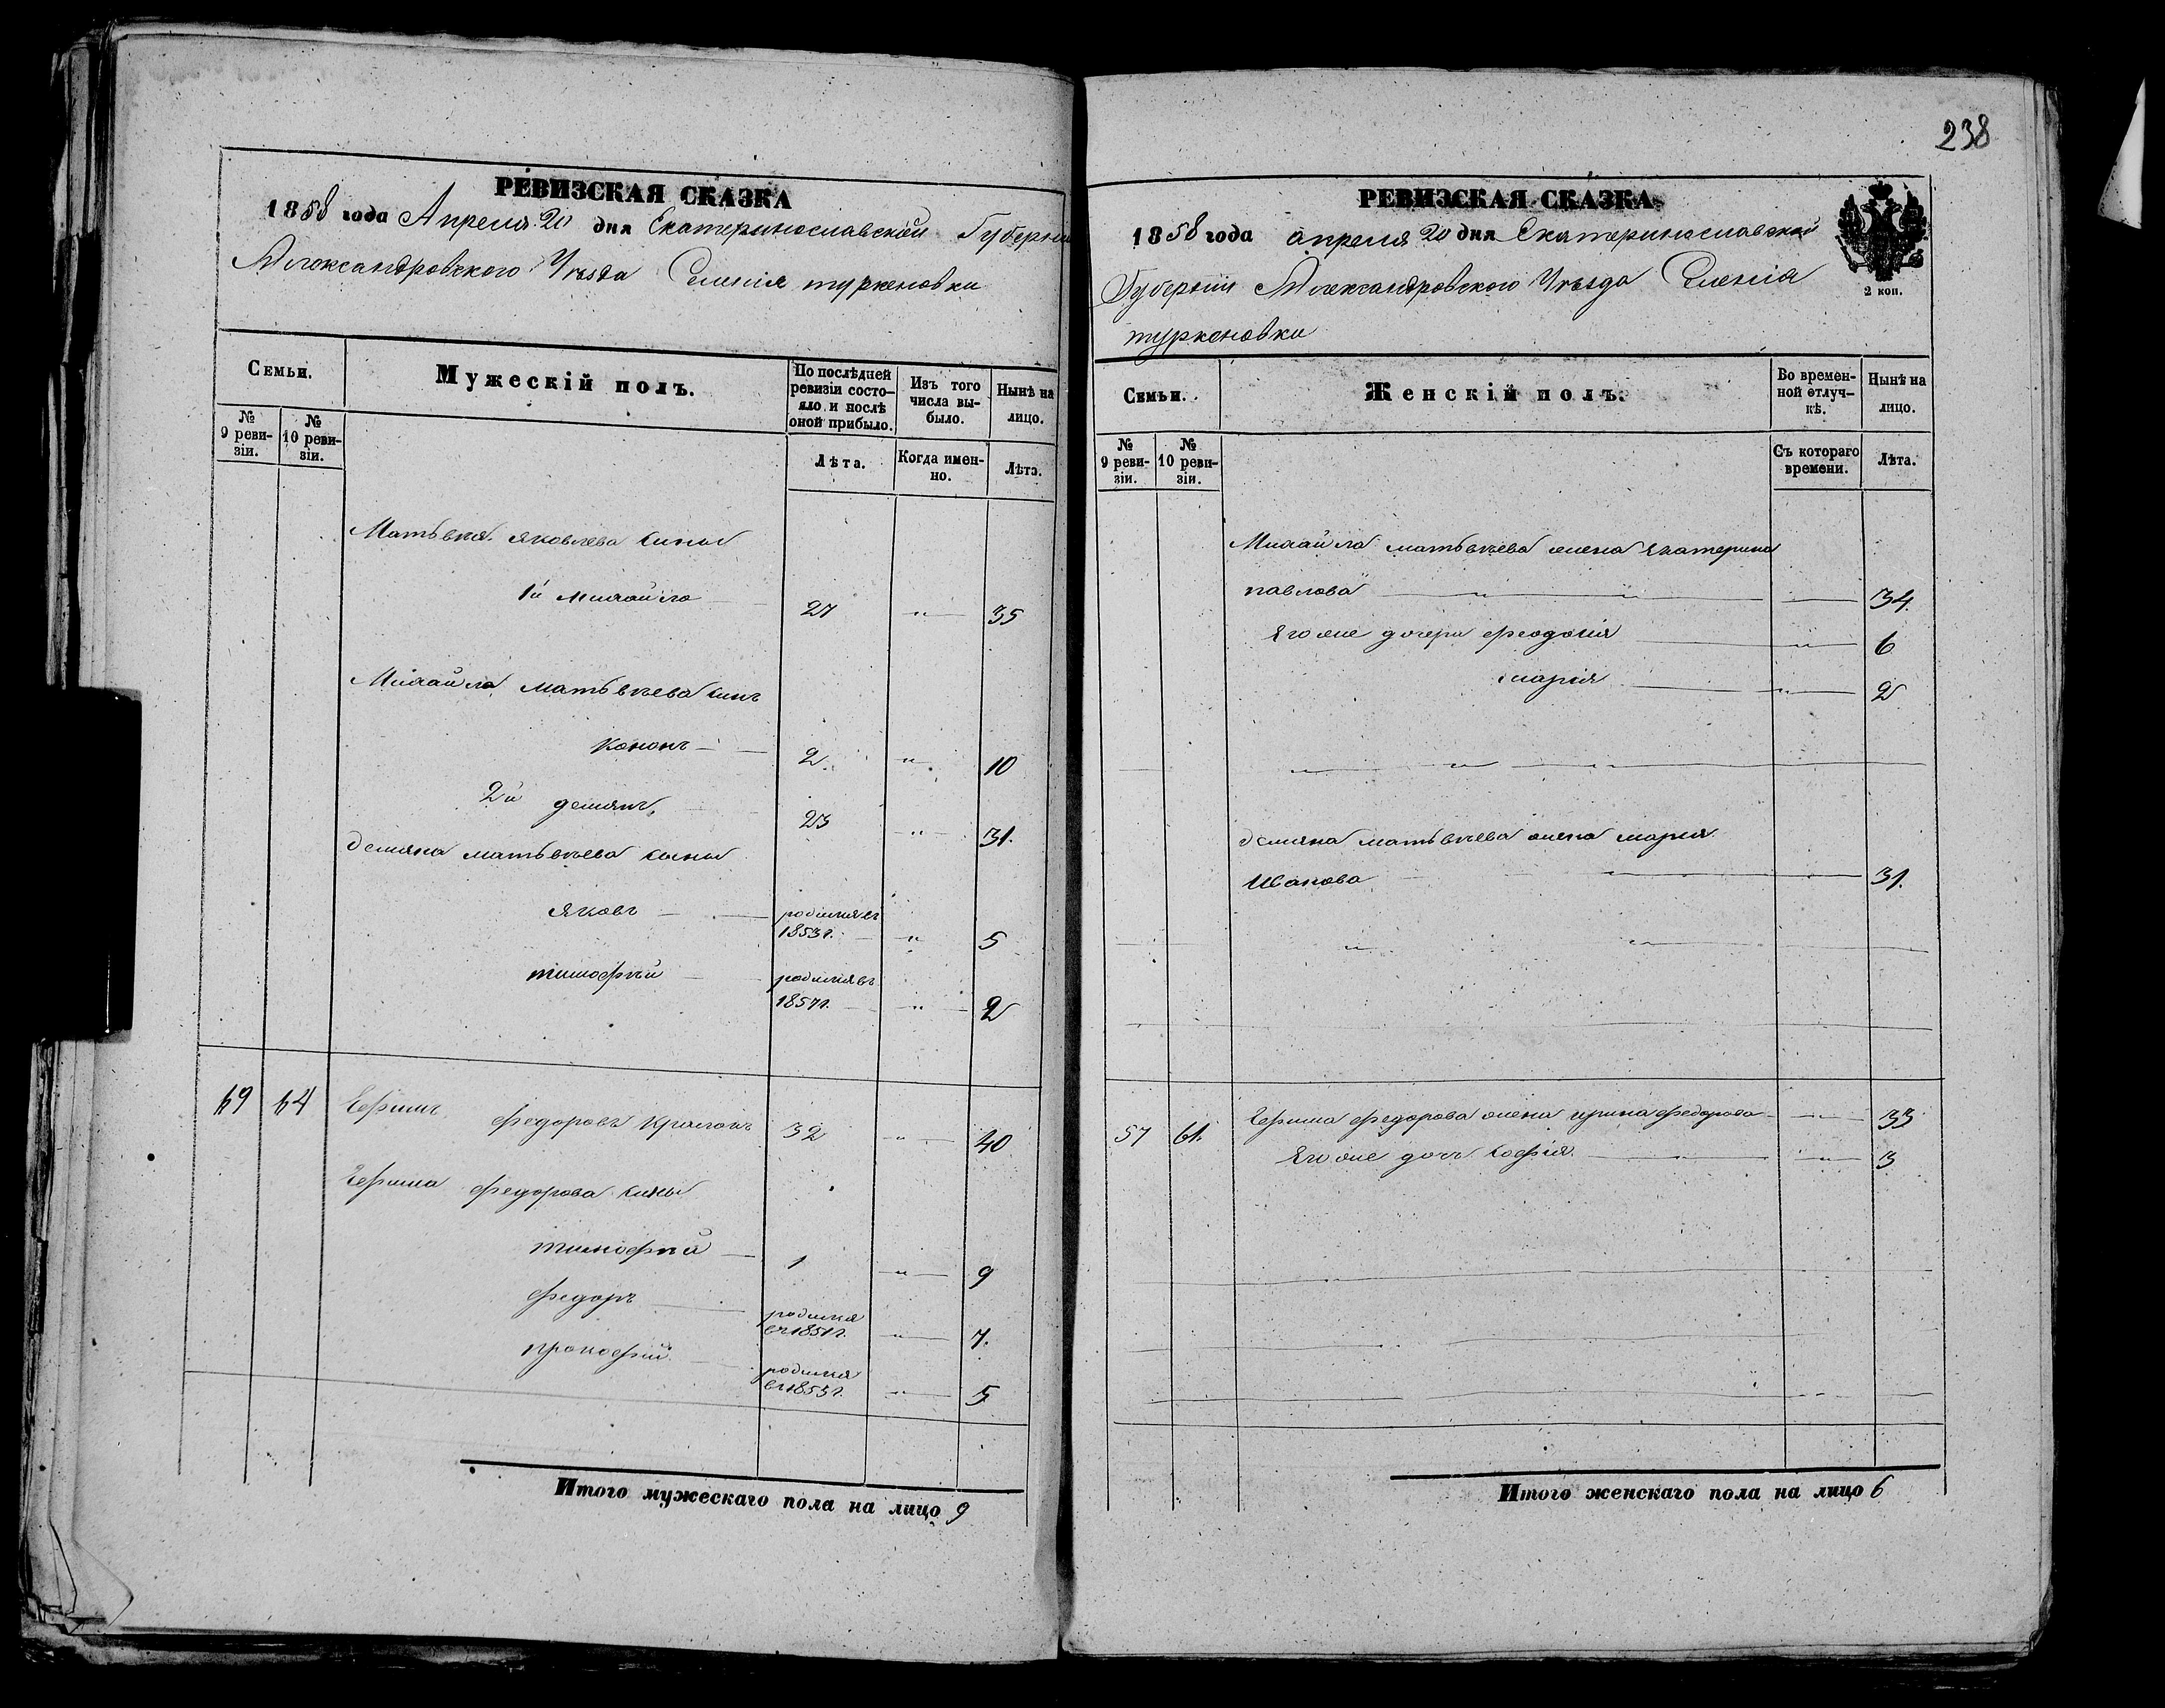 238
РЕВИЗСКАЯ СКАЗКА
1858 года Апреля 20 дня Екатеринославской Губернии
Александровского Уѣзда Селенія туркеновки
Семьи.
Мужескій полъ.
По послѣдней ревизіи состояло и послѣ оной прибыло.
Изъ того числа выбыло.
Нынѣ на лицо.
№ 9 ревизіи.
№ 10 ревизіи.
Лѣта.
Когда именно.
Лѣта.
Матвѣя яковлева сины
1й Михайло 27 " 35
Михайла матвѣева синъ
кононъ 2. " 10
2й демянъ 23 " 31.
демяна матвѣева сины
яковъ родился въ 1853 г. " 5
тимофѣй родился въ 1857 г. " 2
69 64 Ефимъ федоровъ 32 " 40
Ефима федорова сины
тимофѣй 1 " 9
федоръ родился въ 1851 г. " 7.
прокофій родился въ 1853 г. " 5
Итого мужескаго пола на лицо 9
РЕВИЗСКАЯ СКАЗКА
1858 года апреля 20 дня Екатеринославской
2 коп.
Губерніи Александровского Уѣзда Селенія
туркеновки
Семьи.
Женскій полъ.
Во временной отлучкѣ.
Нынѣ на лицо.
№ 9 ревизіи.
№ 10 ревизіи.
Съ котораго времени.
Лѣта.
Михайла матвѣева жена Екатерина
павлова " " " 34.
Его же дочери феодосия " 6
мария " 2
демяна матвѣева жена мария
Иванова " " 31.
57 61. Ефима федорова жена ирина федорова " 33
Его же дочь софія " " 3
Итого женскаго пола на лицо 6